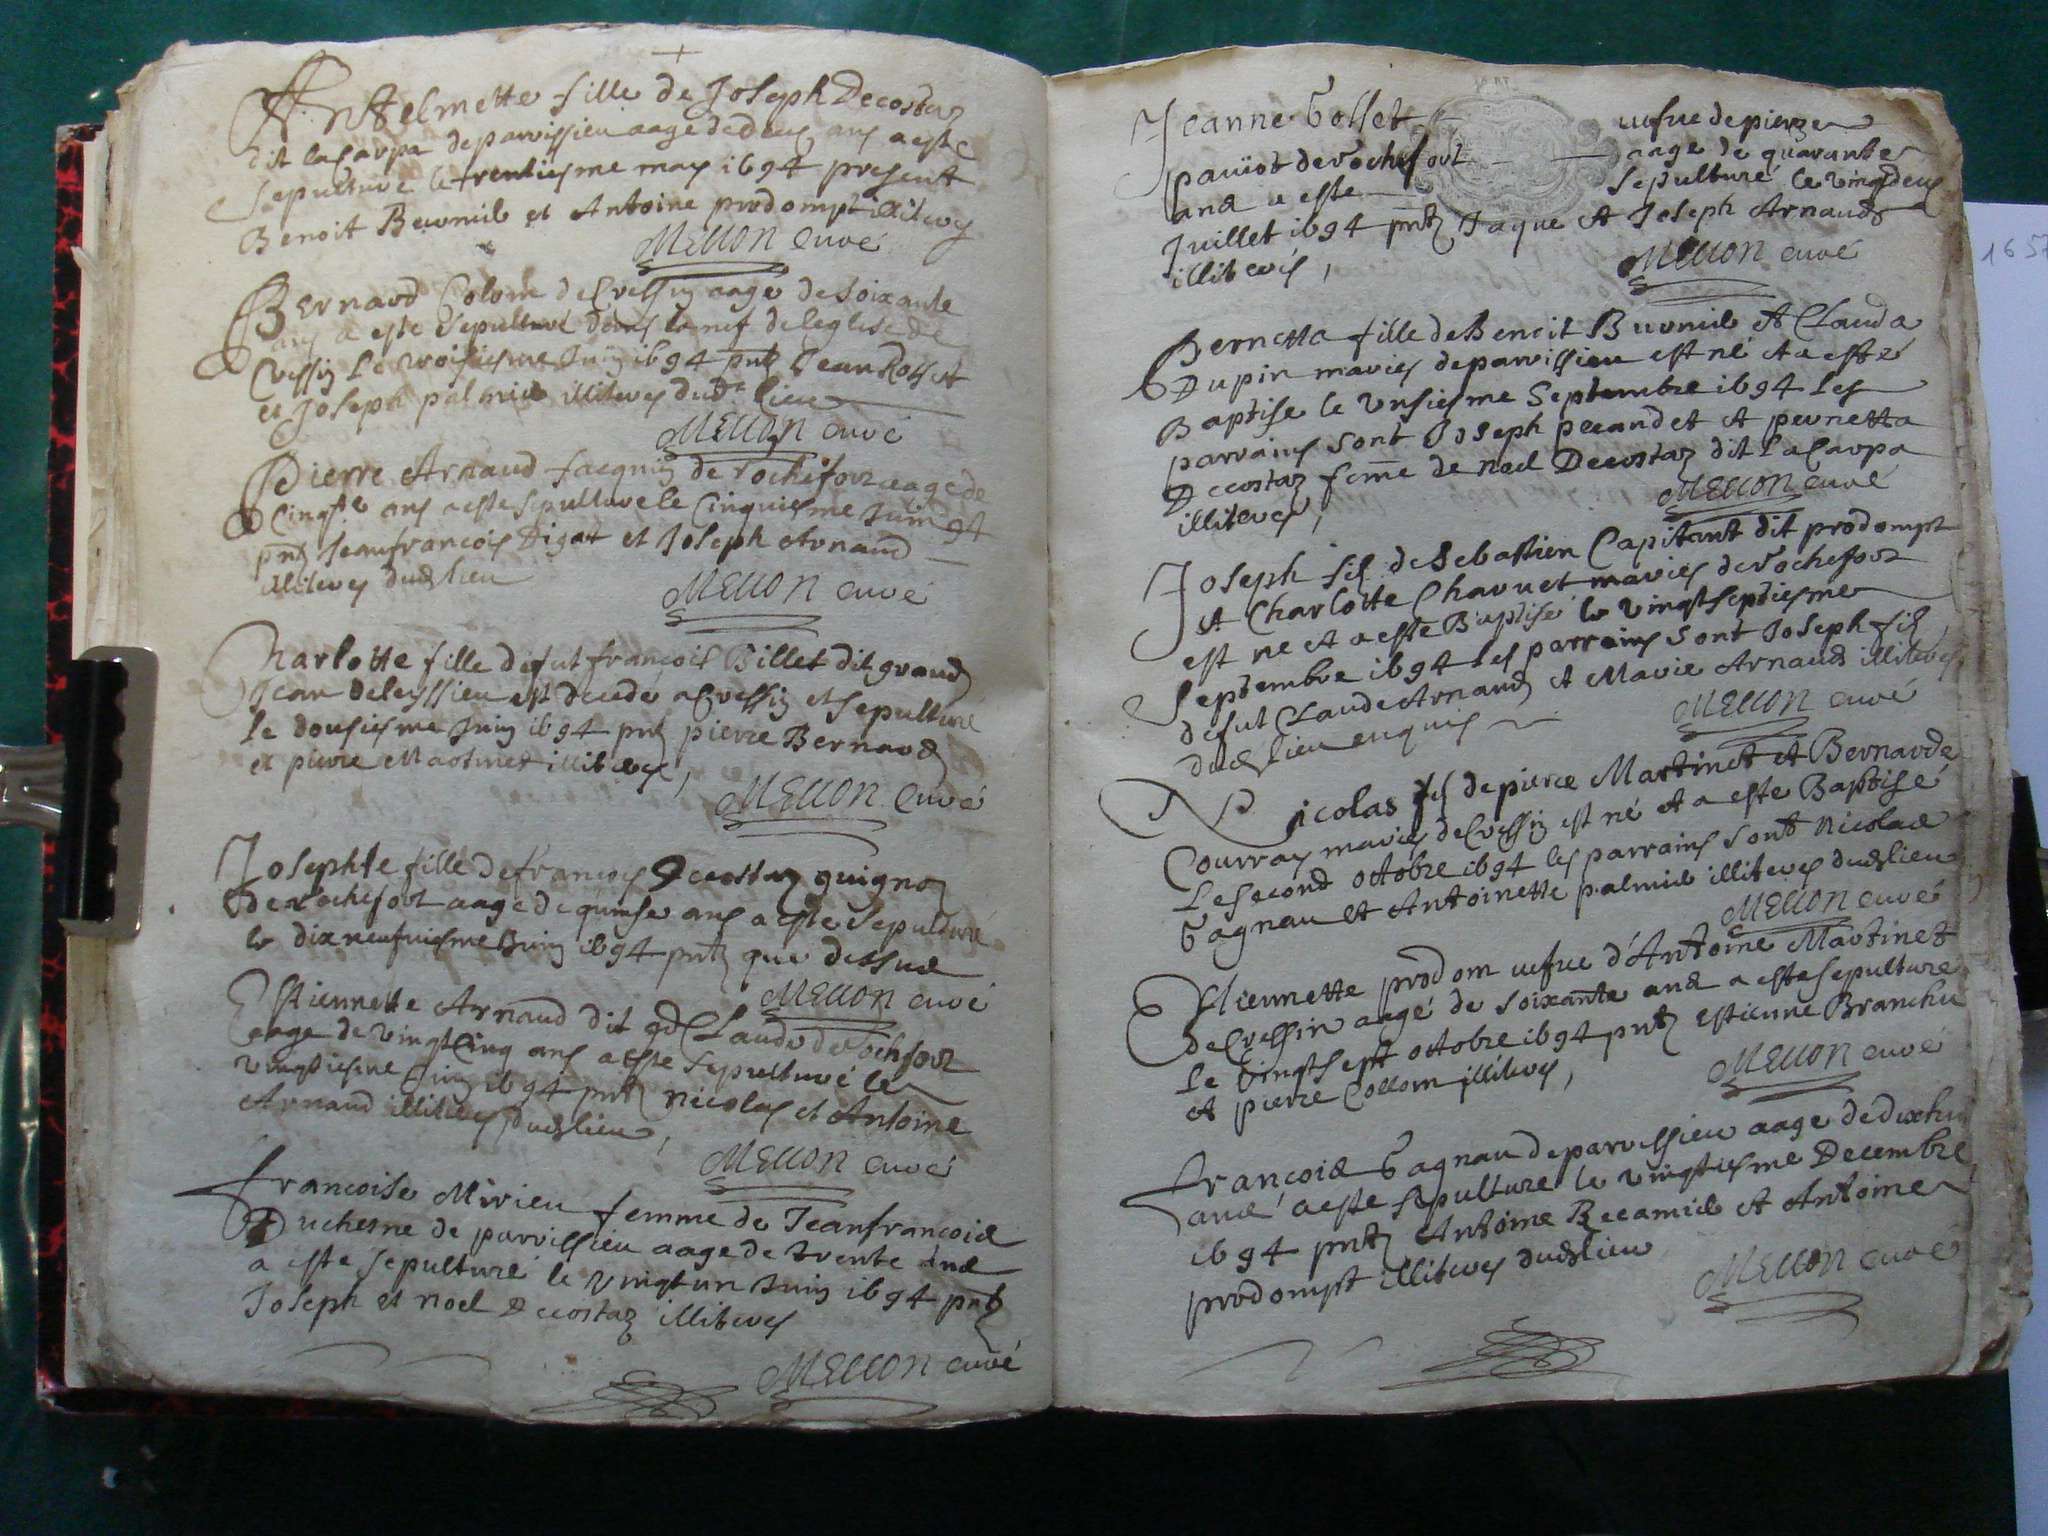 Anthelmette fille de Joseph Decostaz
dit laCarpa de parvissieu aage de deux ans a este
sepulturé le trentiesme may 1694 present
Benoit Burnid et Antoine prodompt illiterez
Mellon curé
Bernard Colom de Cressin aage de soixante
ans a esté sepulturé dans la nef de leglise de
Cressin Le troisiesme Juin 1694 pnts Jean Rosset
et Joseph palmid illiteres dudt lieu
Mellon curé
Pierre Arnaud Jacquin de rochefort aage de
Cinqte ans a este sepulturé le Cinquiesme Juin 94
pnts Jeanfrancois Digat et Joseph Arnaud
illiteres dud lieu
Mellon curé
Charlotte fille de fut françois Billet dit grand
Jean deleyssieu est decedé a Cressin et sepulturé
le dousiesme Juin 1694 pnts pierre Bernard
et pierre Martinet illiteres,
Mellon Curé
Josephte fille de francois Decostaz guignoz
de rochefort aage de quinse ans a este sepulturé
le dixneufviesme Juin 1694 pnts que dessus
Mellon curé
Estiennette Arnaud dit gd Claude de rochefort
aage de vingtcinq ans a este sepulturé le
vingtiesme Juin 1694 pnts nicolas et Antoine
Arnaud illiteres dud lieu,
Mellon curé
francoise Mirieu femme de Jeanfrancois
Duchesne de parvissieu aage de trente ans
a este sepulturé le vingtun Juin 1694 pnts
Joseph et noel Decostaz illiteres
Mellon curé
Jeanne Gollet vefve de pierre
paviot de rochefort aage de quarante
ans a este sepulturé le vingtdeux
Juillet 1694 pnts Jaque et Joseph Arnaud
illiteres,
Mellon curé
Bernetta fille de Benoit Burnid et Clauda
Dupin mariés de parvissieu est né et a esté
Baptisé le unsiesme Septembre 1694 les
parrains sont Joseph pecandet et pernetta
Decostaz feme de noel Decostaz dit laCarpa
illiteres,
Mellon curé
Joseph fils de Sebastien Capitant dit prodompt
et Charlotte Charvet mariés de rochefort
est ne et a este Baptisé le vingtseptiesme
Septembre 1694 les parrains sont Joseph fils
de fut Claude Arnaud et Marie Arnaud illiteres
dud lieu enquis
Mellon curé
Nicolas fils de pierre Martinet et Bernarde
Courray mariés de Cressin est né et a este Baptisé
Le second octobre 1694 les parrains sont nicolas
Gagnau et Antoinette palmid illiteres dud lieu
Mellon curé
Estiennette prodom vefve d'Antoine Martinet
de Cressin aagé de soixante ans a este sepulture
le vingtsept octobre 1694 pnts estienne Branchu
et pierre Collom illiteres,
Mellon curé
francois Gagnau de parvissieu aage de dixhui
ans a este sepulturé le vingtiesme Decembre
1694 pnts Antoine Recamid et Antoine
prodompt illiteres dud lieu
Mellon curé
1657